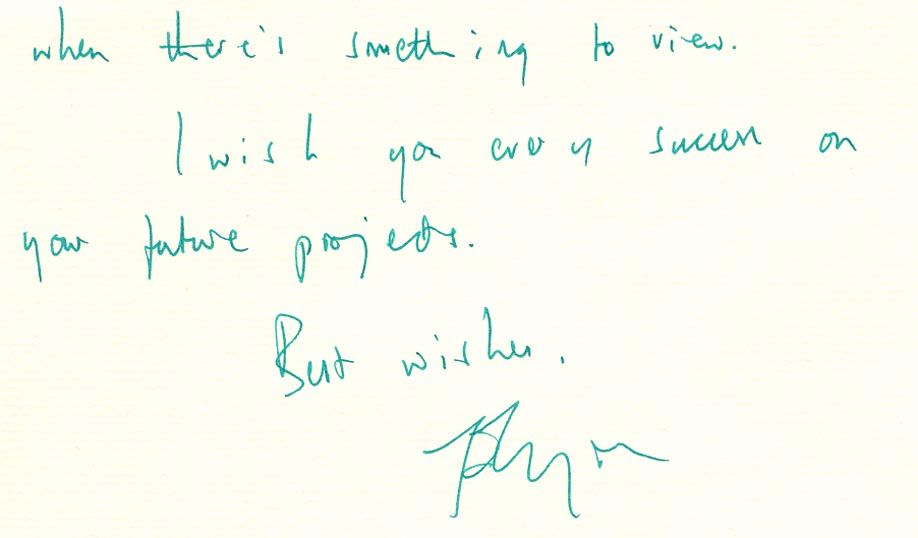 when there's something to view.
I wish you every success on
your future projects.
Best wishes.